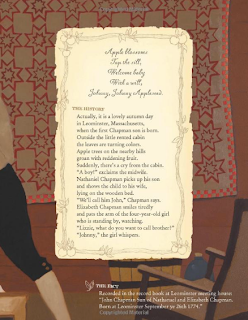 Apple blossoms
Tap the sill,
Welcome baby
With a will,
Johnny, Johnny Appleseed.
THE HISTORY
Actually, it is a lovely autumn day
in Leominster, Massachusetts,
when the first Chapman son is born.
Outside the little rented cabin
the leaves are turning colors.
Apple trees on the nearby hills
groan with reddening fruit.
Suddenly, there's a cry from the cabin.
"A boy!" exclaims the midwife.
Nathaniel Chapman picks up his son
and shows the child to his wife,
lying on the wooden bed.
"We'll call him John," Chapman says.
Elizabeth Chapman smiles tiredly
and pats the arm of the four-year-old girl
who is standing by, watching.
"Lizzie, what do you want to call brother?"
"Johnny," the girl whispers.
THE FACT
Recorded in the record book at Leominster meeting house:
"John Chapman Sun of Nathanael and Elizabeth Chapman
Born at Leominster September ye 26th 1774."
Copyrighted Material